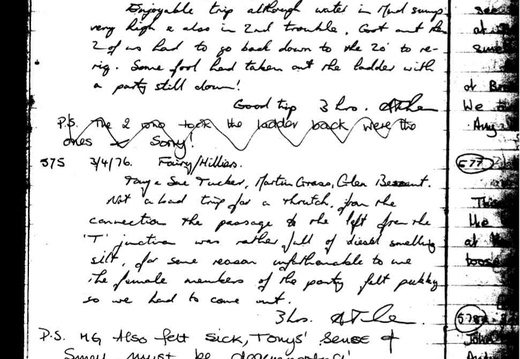 Enjoyable trip although water in Mud sump
very high & also in 2nd trouble. Got out then
2 of us had to go back down to the 20' to re-
rig. Some fool had taken out the ladder with
a party still down!
Good trip 3 hrs.
P.S. The 2 who took the ladder back were the
ones - Sorry!
575 3/4/76. Fairy/Hilliers.
Tony & Sue Tucker, Martin Grass, Glen
Not a bad trip for a thrutch, from the
connection the passage to the left from the
'T' junction was rather full of diesel smelling
silt, for some reason unfathomable to me
the female members of the party felt pukky
so we had to come out.
3 hrs.
P.S. MG Also felt sick, Tonys' sense of
Smell must be
577
This
the
at
578